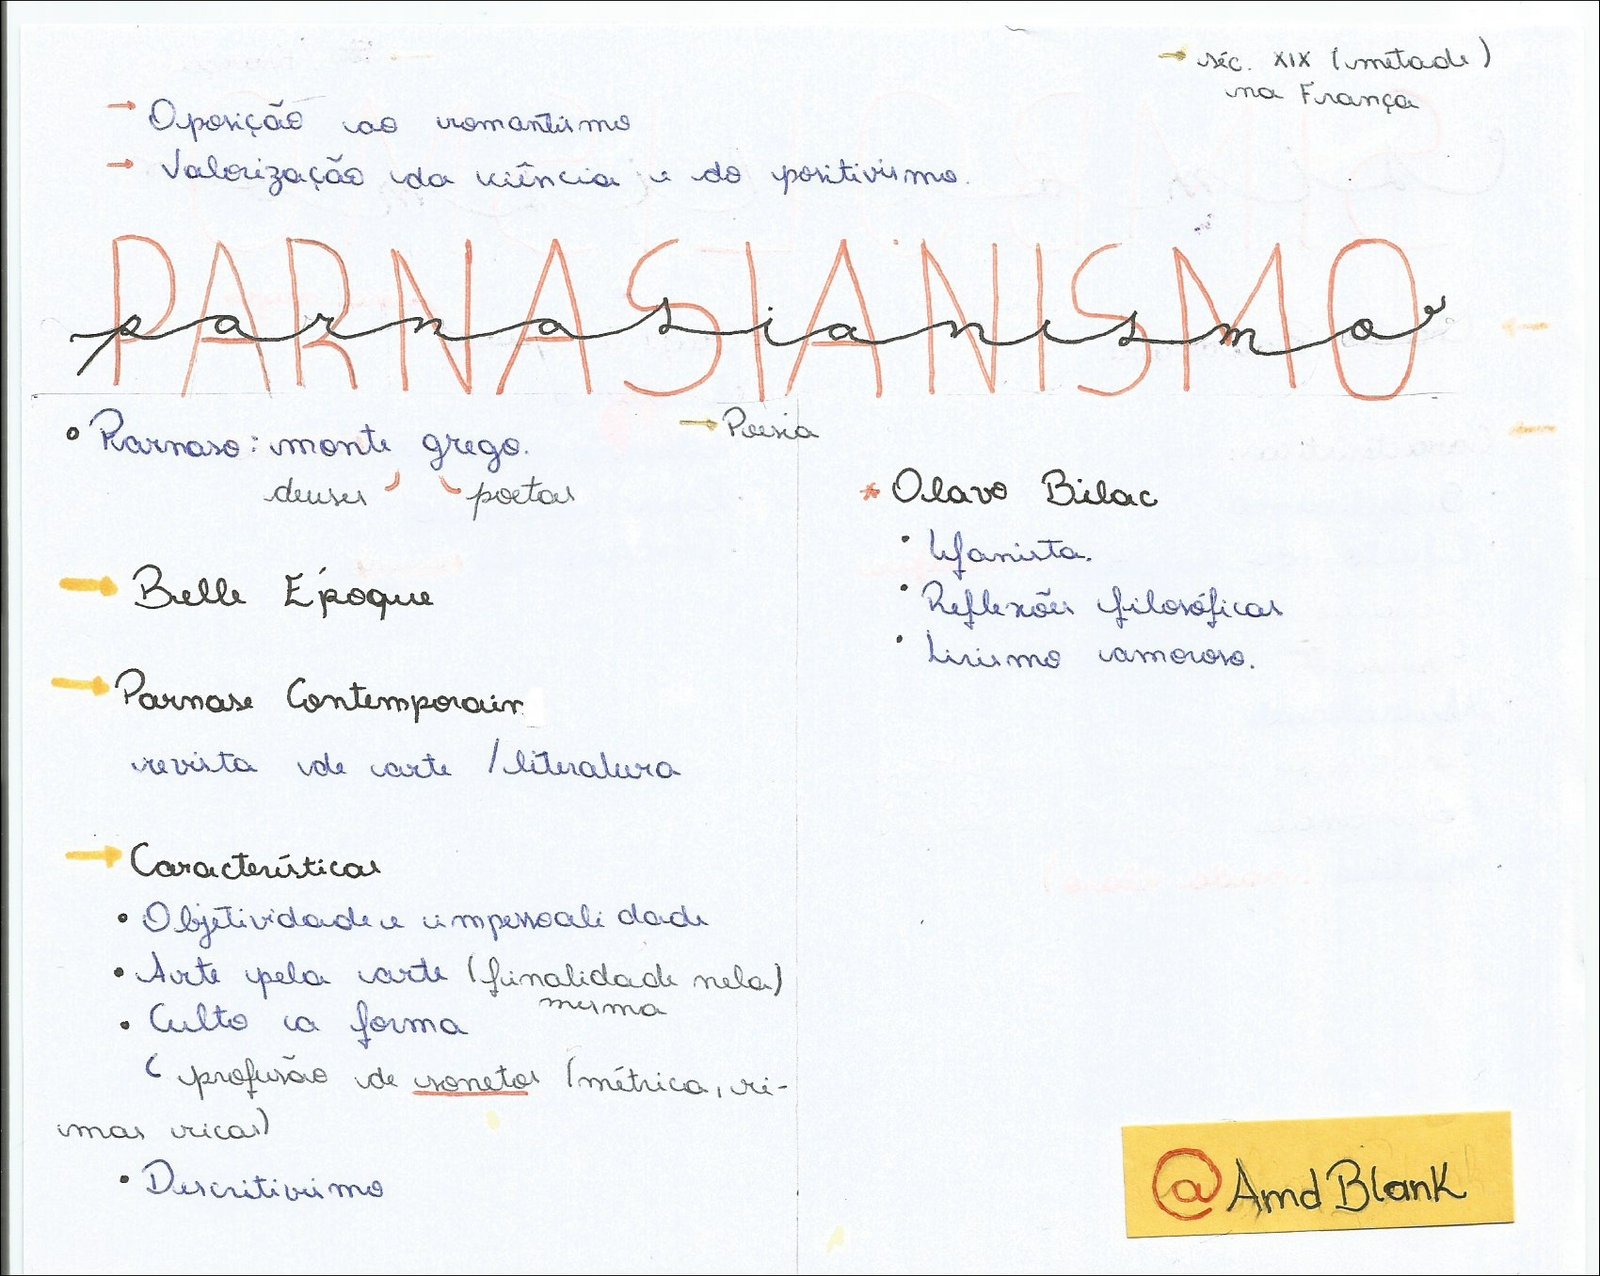 → séc. XIX (metade)
na França
→ Oposição ao romantismo
→ Valorização da ciência e do positivismo.
PARNASIANISMO
parnasianismo
• Parnaso: monte grego.
deuses poetas
→ Poesia
→ Belle Époque
→ Parnase Contemporain
revista de arte / literatura
→ Características
• Objetividade e impessoalidade
• Arte pela arte (finalidade nela)
mesma
• Culto a forma
profusão de sonetos (métrica, ri-
mas ricas)
• Descritivismo
* Olavo Bilac
• Ufanista.
• Reflexões filosóficas
• Lirismo amoroso.
@AmdBlank